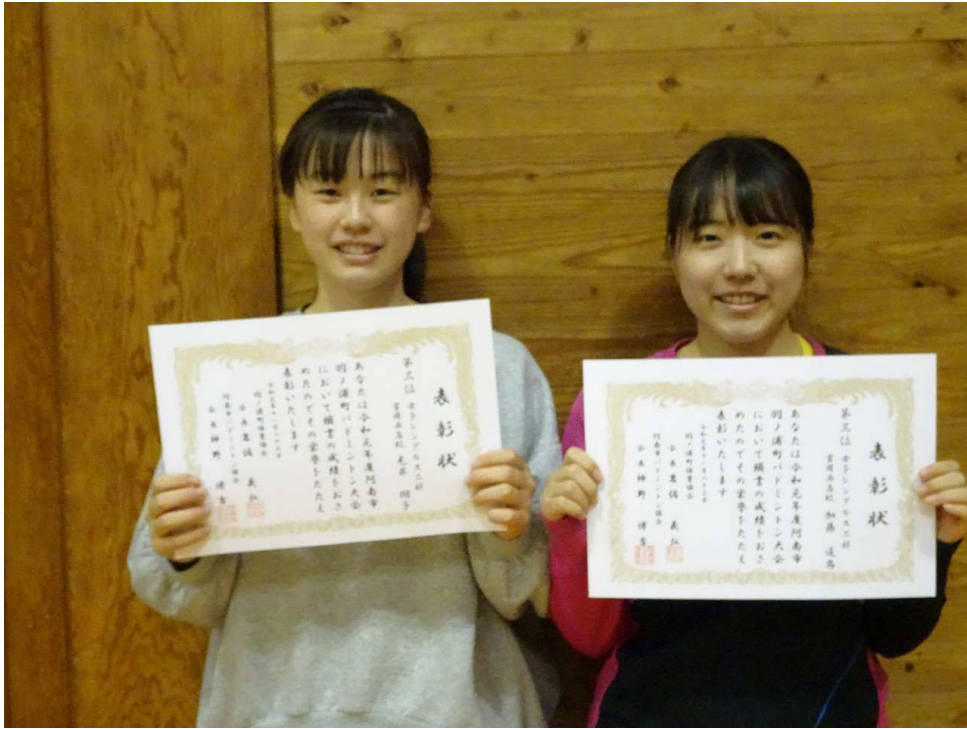 表彰状
第三位 女子シングルス二部
富岡西高校
あなたは令和元年度阿南市
羽ノ浦町バドミントン大会
において頭書の成績をおさ
めたのでその栄誉をたたえ
表彰いたします
羽ノ浦町体育協会
会長
阿南市バドミントン協会
会長 神野 博吉
表彰状
第三位 女子シングルス二部
富岡西高校 加藤
あなたは令和元年度阿南市
羽ノ浦町バドミントン大会
において頭書の成績をおさ
めたのでその栄誉をたたえ
表彰いたします
令和元年十一月二十三日
羽ノ浦町体育協会
会長
阿南市バドミントン協会
会長 神野 博吉